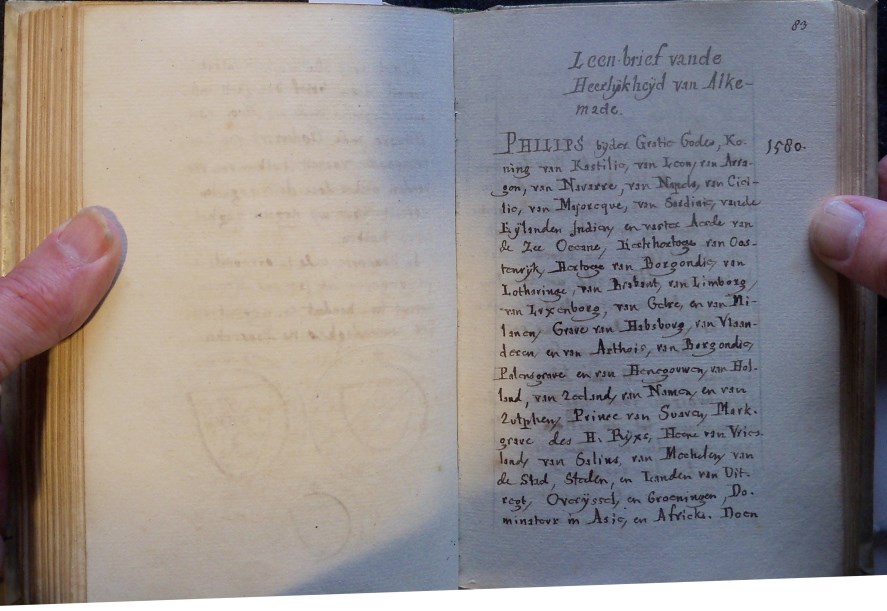 83
Leen-brief vande
Heerlijkheÿd van Alke-
made.
1580.
PHILIPS bijder Gratie Godes, Ko-
ning van Kastilie, van Leon, van Arra-
gon, van Navarre, van Napels, van Cici-
lie, van Majorcque, van Sardinie, vande
Eÿlanden Indien, en vaster Aerde van
de Zee Oceane, Eertshertoge van Oos-
tenrijk, Hertoge van Borgondie, van
Lotharinge, van Brabant, van Limborg,
van Luxenborg, van Gelre, en van Mi-
lanen, Grave van Habsborg, van Vlaan-
deren, en van Arthois, van Borgondie,
Palensgrave en van Henegouwen, van Hol-
land, van Zeeland, van Namen, en van
Zutphen, Prince van Suaven, Mark-
grave des H. Rÿxs, Heere van Vries-
land, van Salins, van Mechelen, van
de Stad, Steden, en Landen van Uit-
regt, Overÿssel, en Groeningen, Do-
minateur in Asie, en Africke. Doen